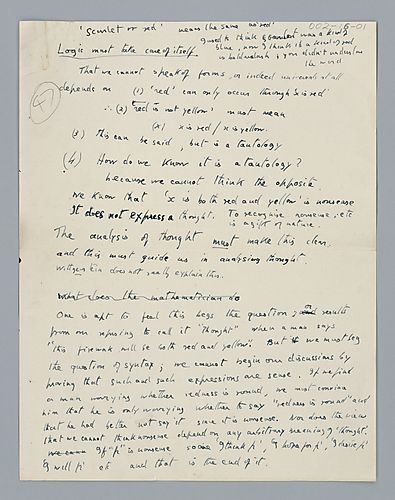 'Scarlet or red' means the same as 'red'
002-16-01
I used to think Scarlet was a kind of
blue, now I think it is a kind of red
is balderdash, & you didn't understand
the word
Logic must take care of itself
That we cannot speak of forms, or indeed universals at all
47
depends on (1) 'red' can only occur through x is red
∴ (2) 'red is not yellow' must mean
(x) x is red / x is yellow.
(3) This can be said, but is a tautology
(4) How do we know it is a tautology?
because we cannot think the opposite
we know that 'x is both red and yellow' is nonsense
It does not express a thought. To recognise nonsense etc
is a gift of nature.
The analysis of thought must make this clear.
and this must guide us in analysing thought.
Wittgenstein does not really explain this.
What does the mathematician do
One is apt to feel this begs the question, or results
from our refusing to call it "thought" when a man says
"this firework will be both red and yellow". But we must beg
the question of syntax; we cannot begin our discussions by
proving that such and such expressions are sense. If we find
a man worrying whether redness is round, we must convince
him that he is only worrying whether to say "redness is round" and
that he had better not say it since it is nonsense. Nor does the view
that we cannot think nonsense depend on any arbitrary meaning of 'thought'.
If "p" is nonsense so is 'I think p', 'I hope for p', 'I
'I will p' etc and that is the end of it.